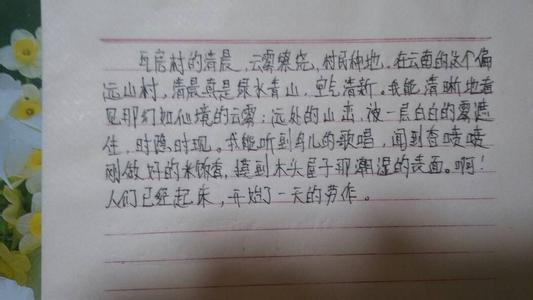 瓦房村的清晨,云雾缭绕,村民种地,在云南的这个偏
远山村,清晨真是绿水青山,空气清新。我能清晰地看
见那幻如仙境的云雾;远处的山峦,被一层白白的雾遮
住,时隐时现。我能听到鸟儿的歌唱,闻到香喷喷
刚做好的米饭香,摸到木头屋子那潮湿的表面。啊!
人们已经起床,开始了一天的劳作。